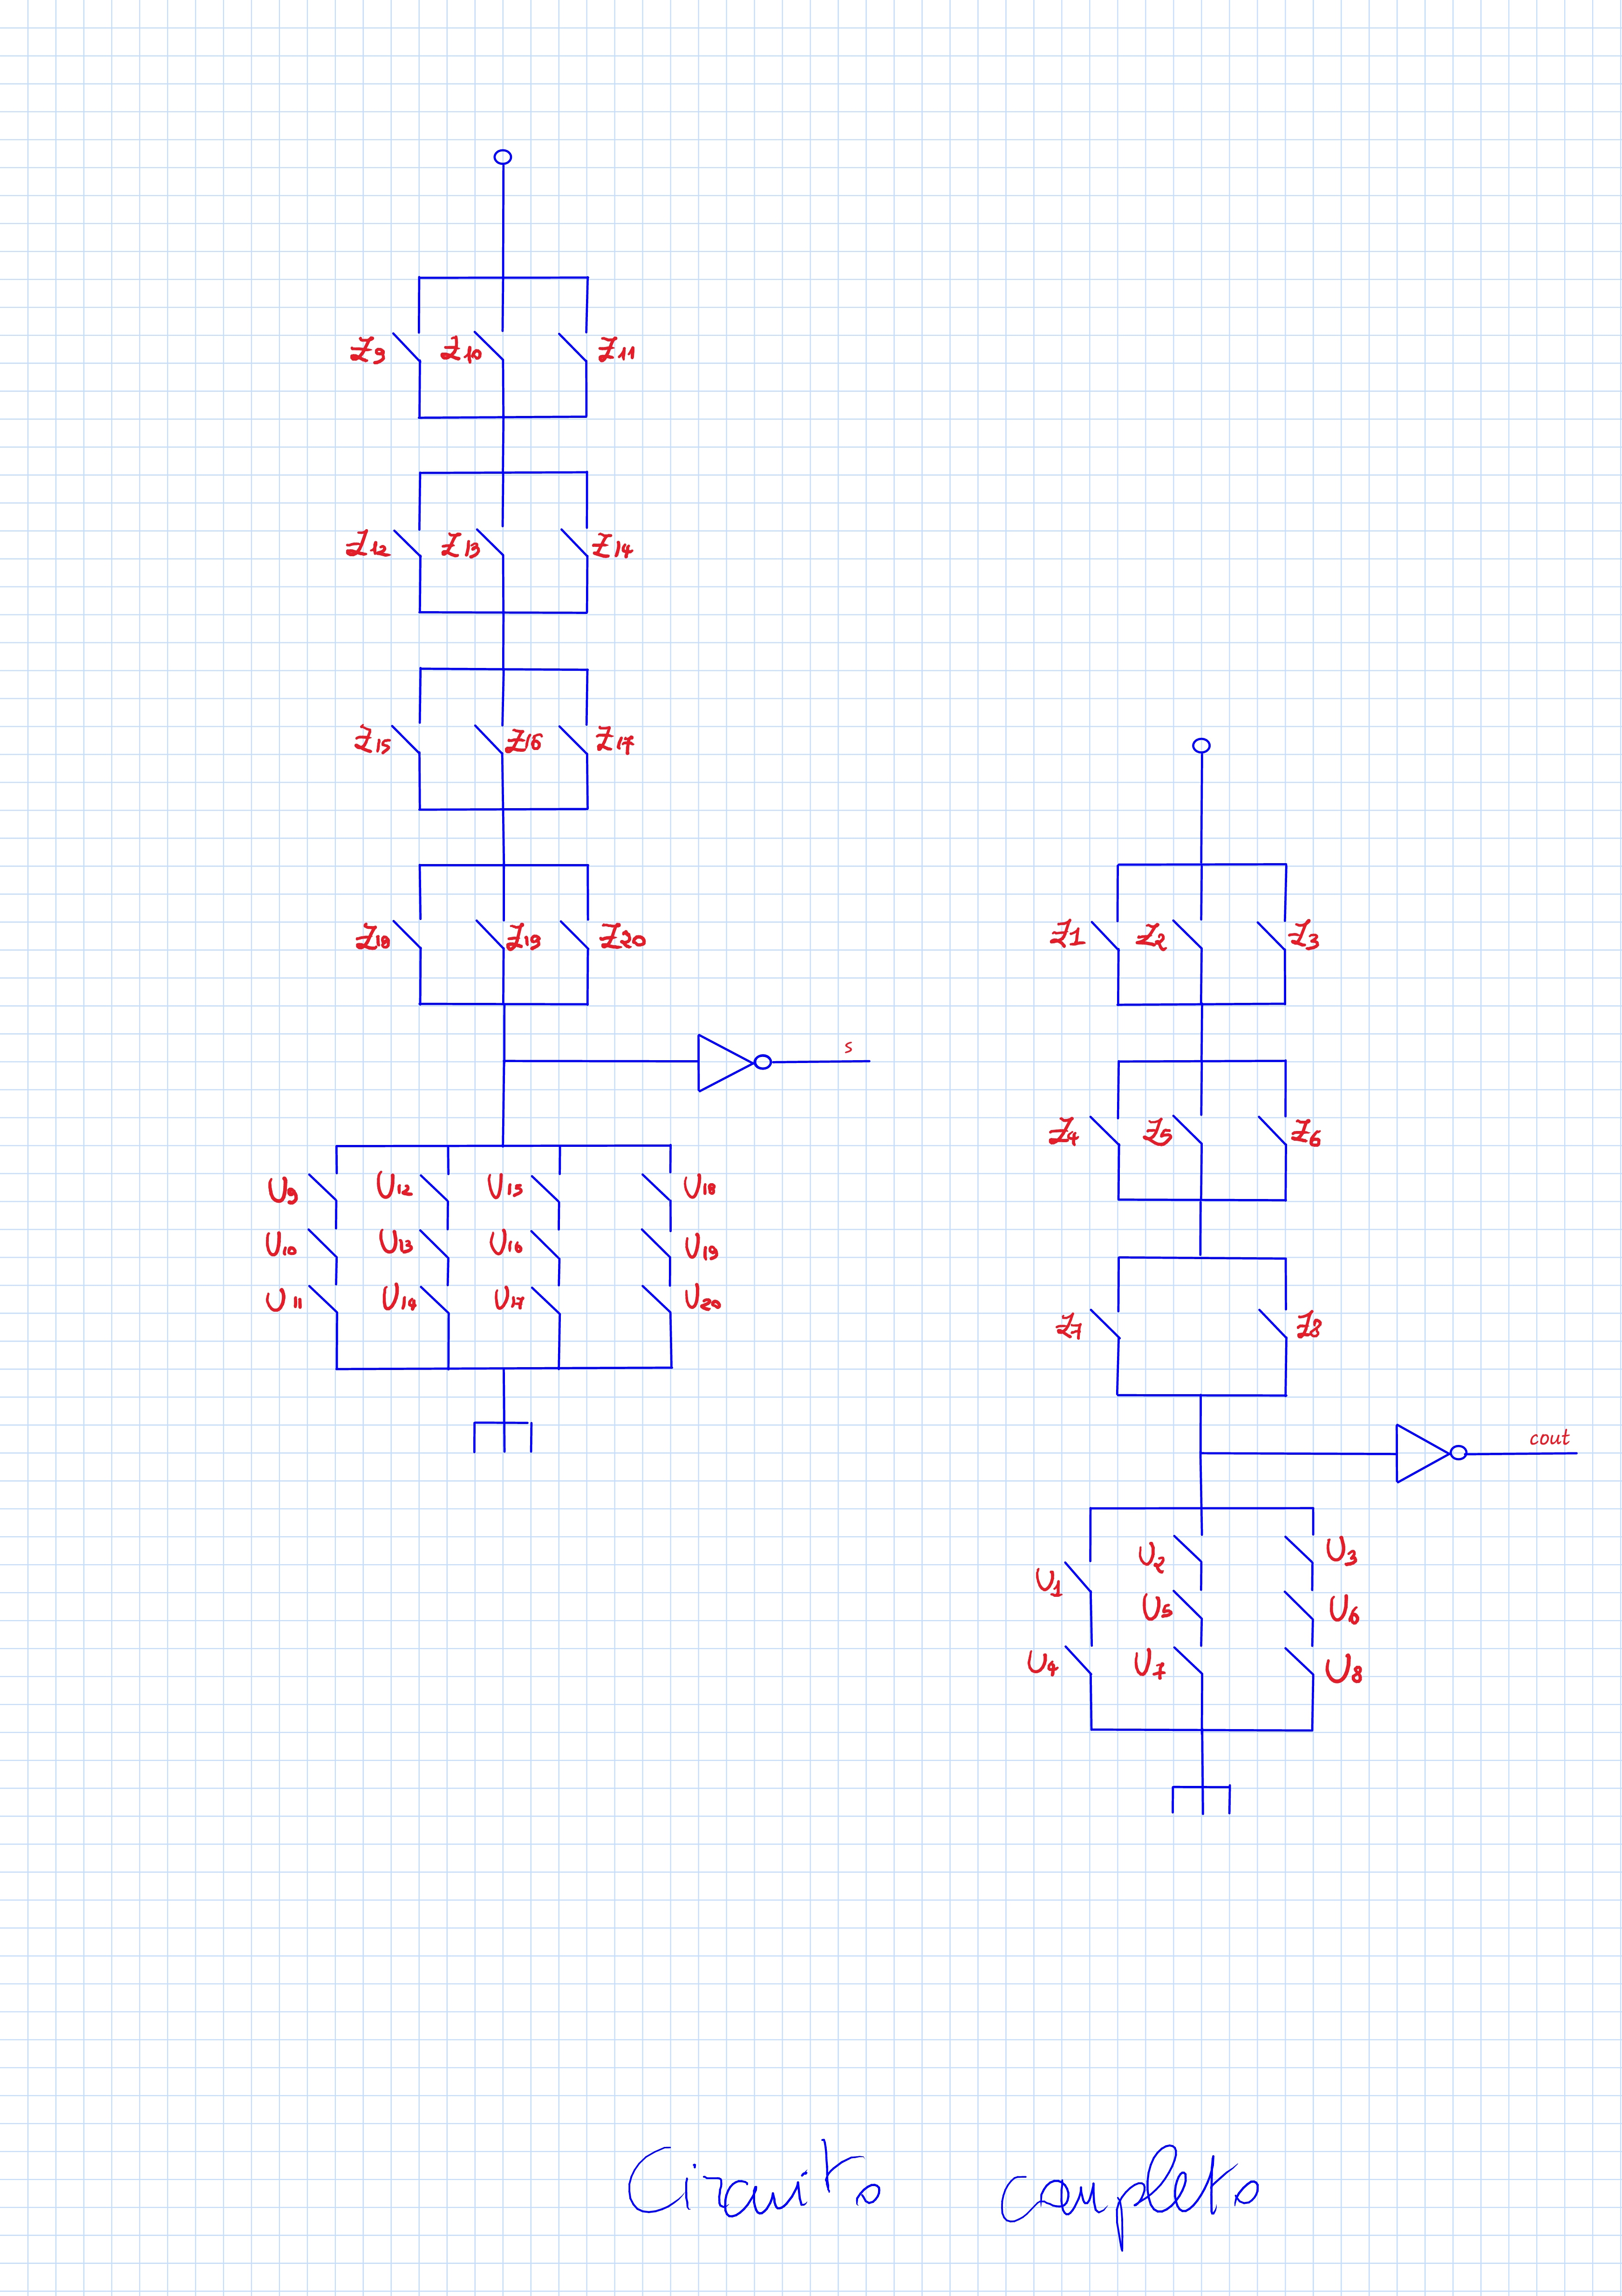 Z9 Z10 Z11
Z12 Z13 Z14
Z15 Z16 Z17
Z18 Z19 Z20
s
U9 U12 U15 U18
U10 U13 U16 U19
U11 U14 U17 U20
Z1 Z2 Z3
Z4 Z5 Z6
Z7 Z8
cout
U1 U2 U3
U5 U6
U4 U7 U8
Circuito completo